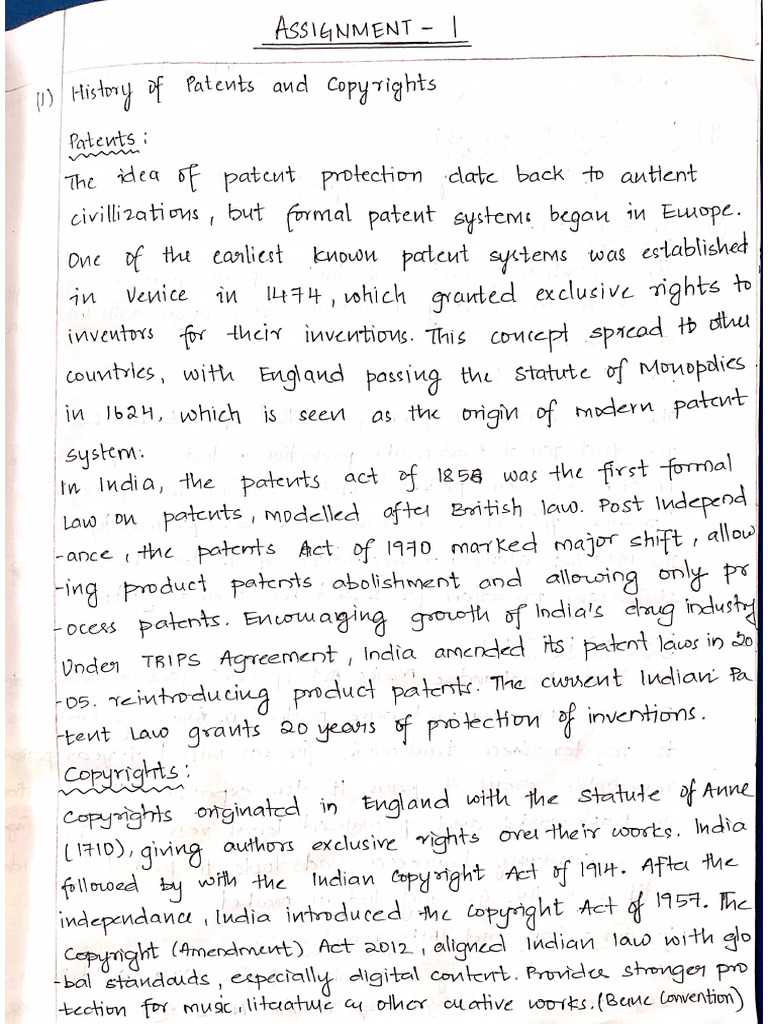 ASSIGNMENT - 1
(1) History of Patents and Copyrights
Patents :
The idea of patent protection date back to antient
civillizations, but formal patent systems began in Europe.
One of the earliest known patent systems was established
in Venice in 1474, which granted exclusive rights to
inventors for their inventions. This concept spread to other
countries, with England passing the Statute of Monopolies
in 1624, which is seen as the origin of modern patent
system.
In India, the patents act of 1856 was the first formal
Law on patents, modelled after British law. Post Independ
-ance, the patents Act of 1970 marked major shift, allow
-ing product patents abolishment and allowing only pr
-ocess patents. Encouraging growth of India's drug industry
Under TRIPS Agreement, India amended its patent laws in 20
-05. reintroducing product patents. The current Indian Pa
-tent Law grants 20 years of protection of inventions.
Copyrights :
Copyrights originated in England with the Statute of Anne
(1710), giving authors exclusive rights over their works. India
followed by with the Indian Copyright Act of 1914. After the
independance, India introduced the Copyright Act of 1957. The
Copyright (Amendment) Act 2012, aligned Indian law with glo
-bal standards, especially digital content. Provides stronger pro
-tection for music, literature or other creative works. (Berne Convention)